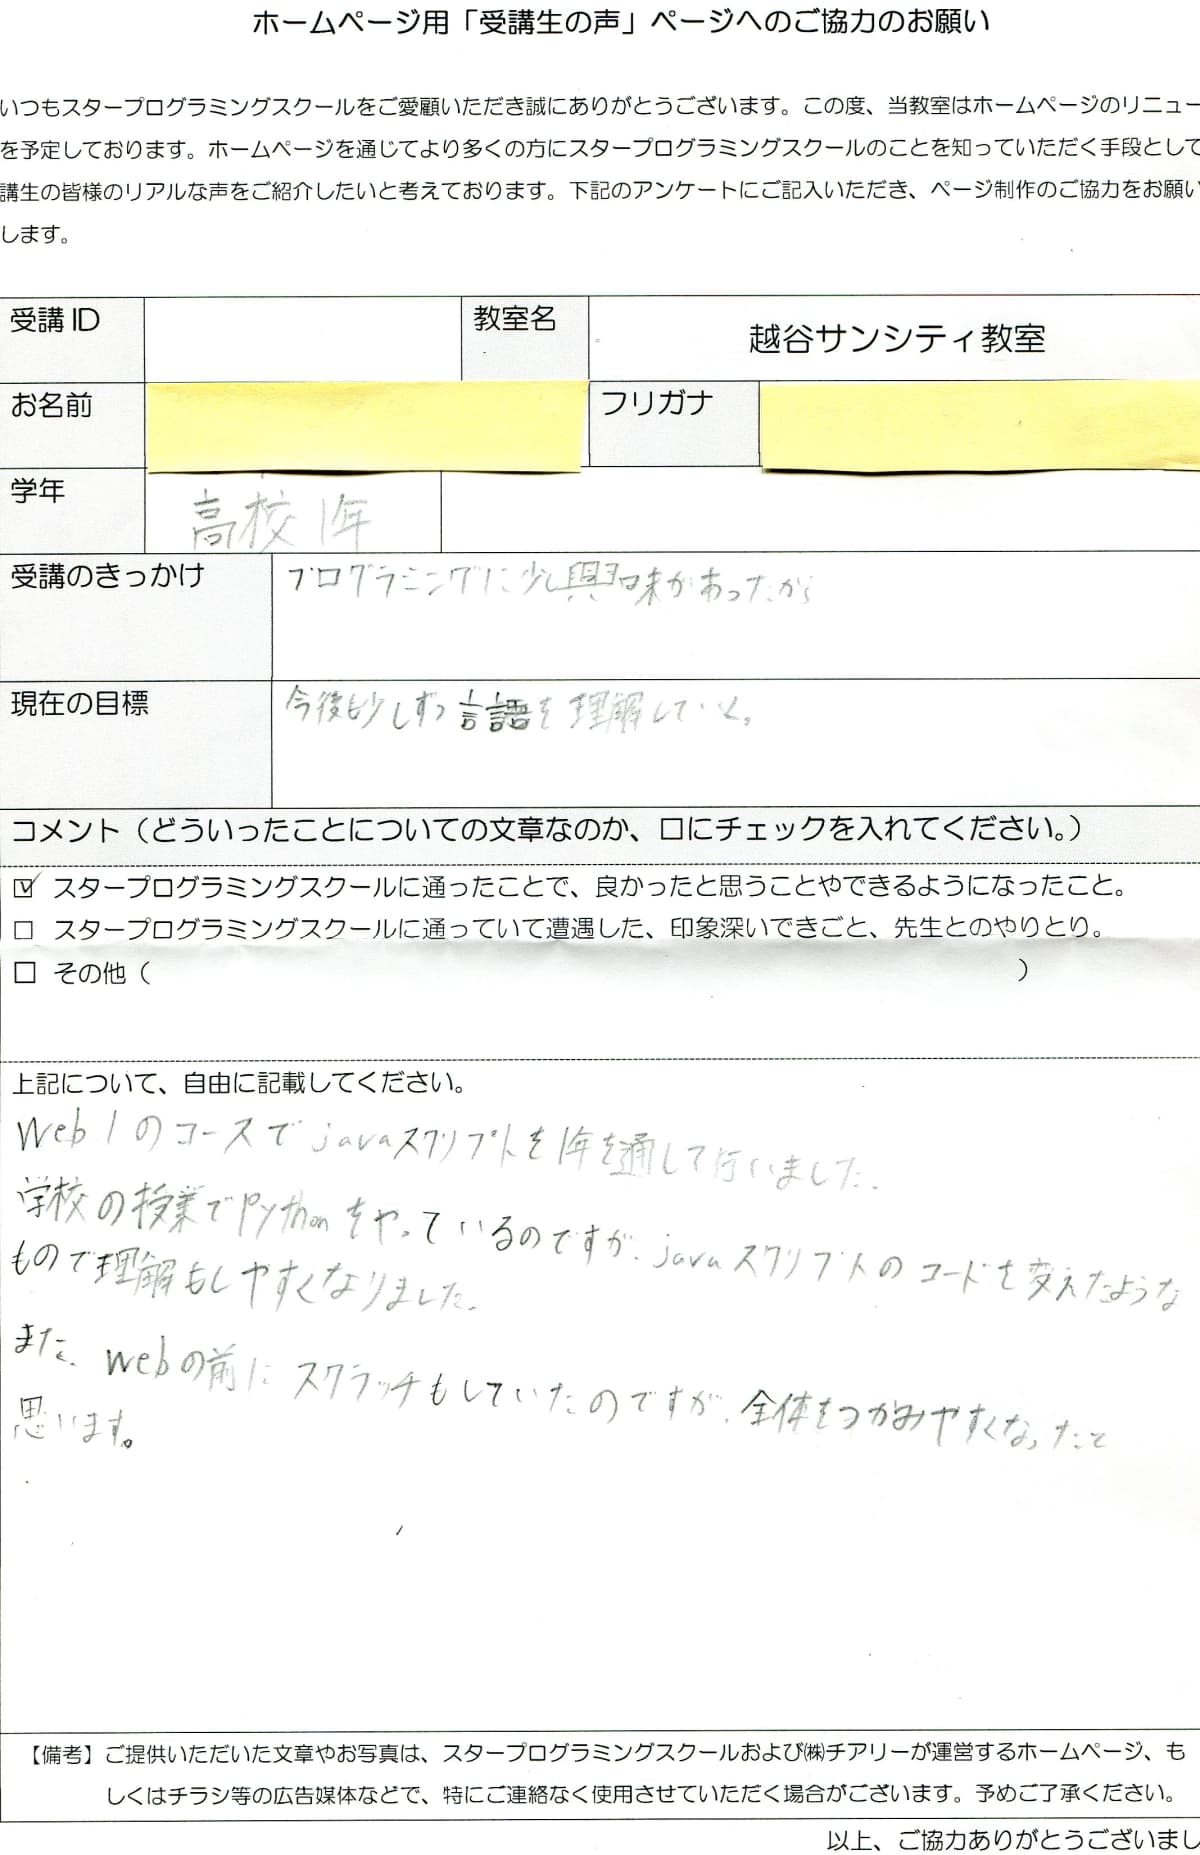 ホームページ用「受講生の声」ページへのご協力のお願い
いつもスタープログラミングスクールをご愛顧いただき誠にありがとうございます。この度、当教室はホームページのリニュー
を予定しております。ホームページを通じてより多くの方にスタープログラミングスクールのことを知っていただく手段として
講生の皆様のリアルな声をご紹介したいと考えております。下記のアンケートにご記入いただき、ページ制作のご協力をお願い
します。
受講ID 教室名 越谷サンシティ教室
お名前 フリガナ
学年 高校1年
受講のきっかけ プログラミングに少し興味があったから
現在の目標 今後も少しずつ言語を理解していく。
コメント（どういったことについての文章なのか、口にチェックを入れてください。）
☑ スタープログラミングスクールに通ったことで、良かったと思うことやできるようになったこと。
□ スタープログラミングスクールに通っていて遭遇した、印象深いできごと、先生とのやりとり。
□ その他（ ）
上記について、自由に記載してください。
Web1のコースでjavaスクリプトを1年を通して行いました。
学校の授業でPythonをやっているのですが、javaスクリプトのコードを変えたような
もので理解もしやすくなりました。
また、Webの前にスクラッチもしていたのですが、全体をつかみやすくなったと
思います。
【備考】ご提供いただいた文章やお写真は、スタープログラミングスクールおよび㈱チアリーが運営するホームページ、も
しくはチラシ等の広告媒体などで、特にご連絡なく使用させていただく場合がございます。予めご了承ください。
以上、ご協力ありがとうございまし